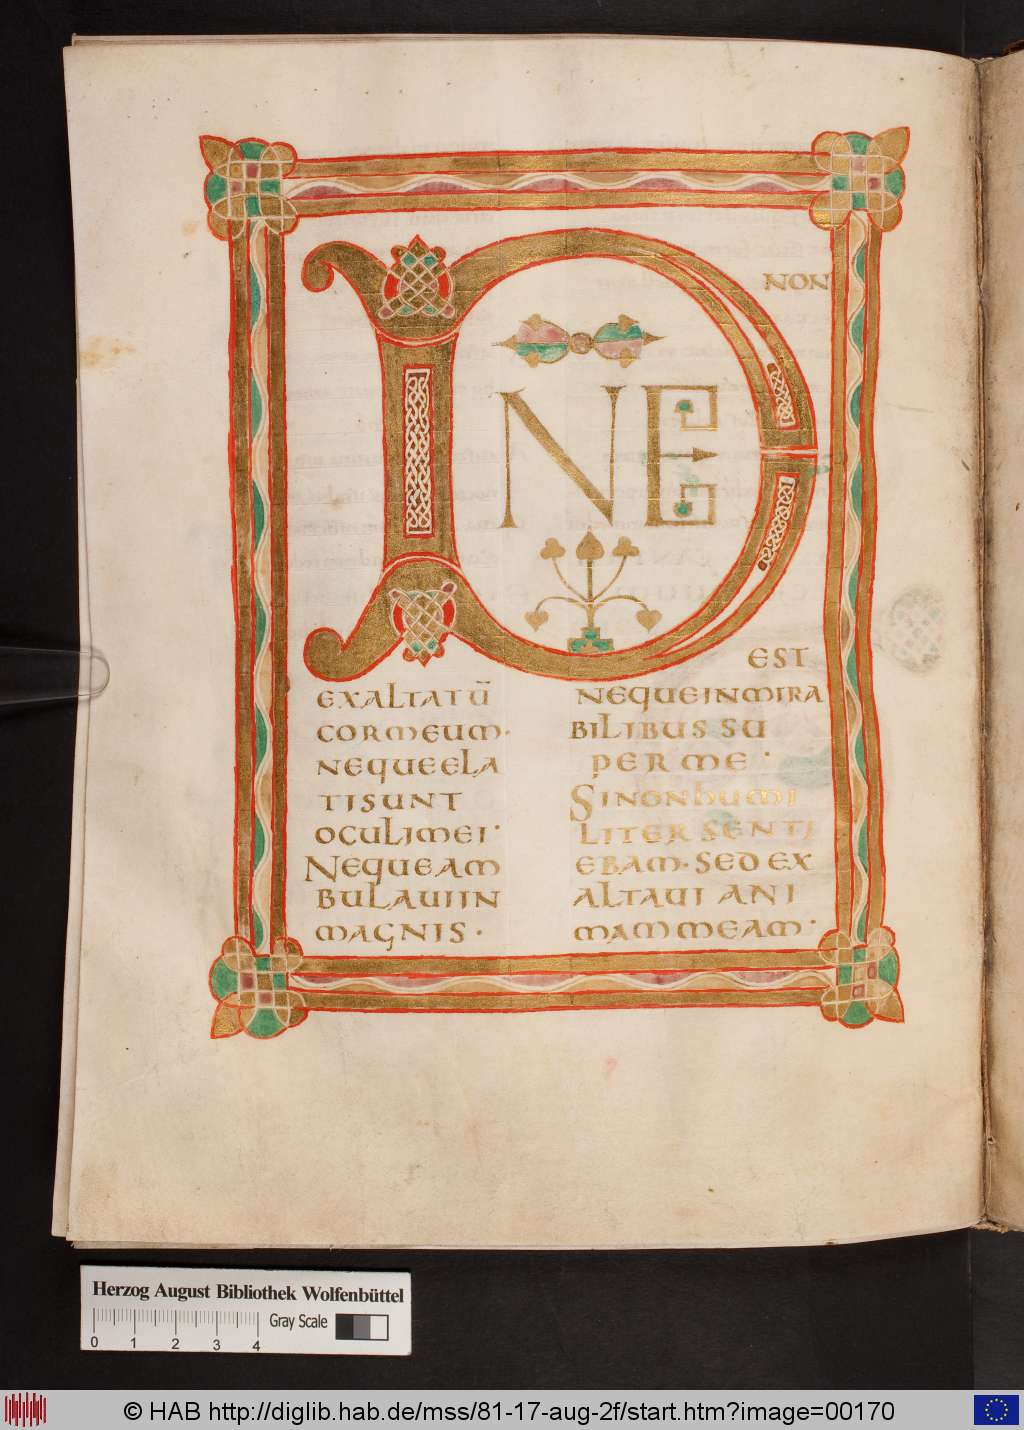 D
NE
NON
EST
EXALTATŪ
CORMEUM·
NEQUEELA
TISUNT
OCULIMEI·
NEQUEAM
BULAUIIN
MAGNIS·
NEQUEINMIRA
BILIBUS SU
PER ME·
SINONHUMI
LITER SENTI
EBAM·SED EX
ALTAUI ANI
MAM MEAM·
Herzog August Bibliothek Wolfenbüttel
Gray Scale
0 1 2 3 4
© HAB http://diglib.hab.de/mss/81-17-aug-2f/start.htm?image=00170